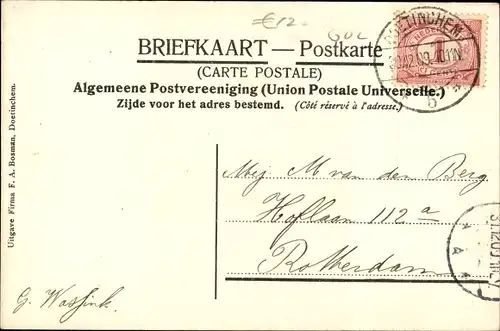 €12
GOL
DOETINCHEM
BRIEFKAART — Postkarte
(CARTE POSTALE)
Algemeene Postvereeniging (Union Postale Universelle.)
Zijde voor het adres bestemd. (Côté réservé à l'adresse.)
Uitgave Firma F. A. Bosman, Doetinchem.
Mej M van den Berg
Hoflaan 112 a
Rotterdam
G. Wassink.